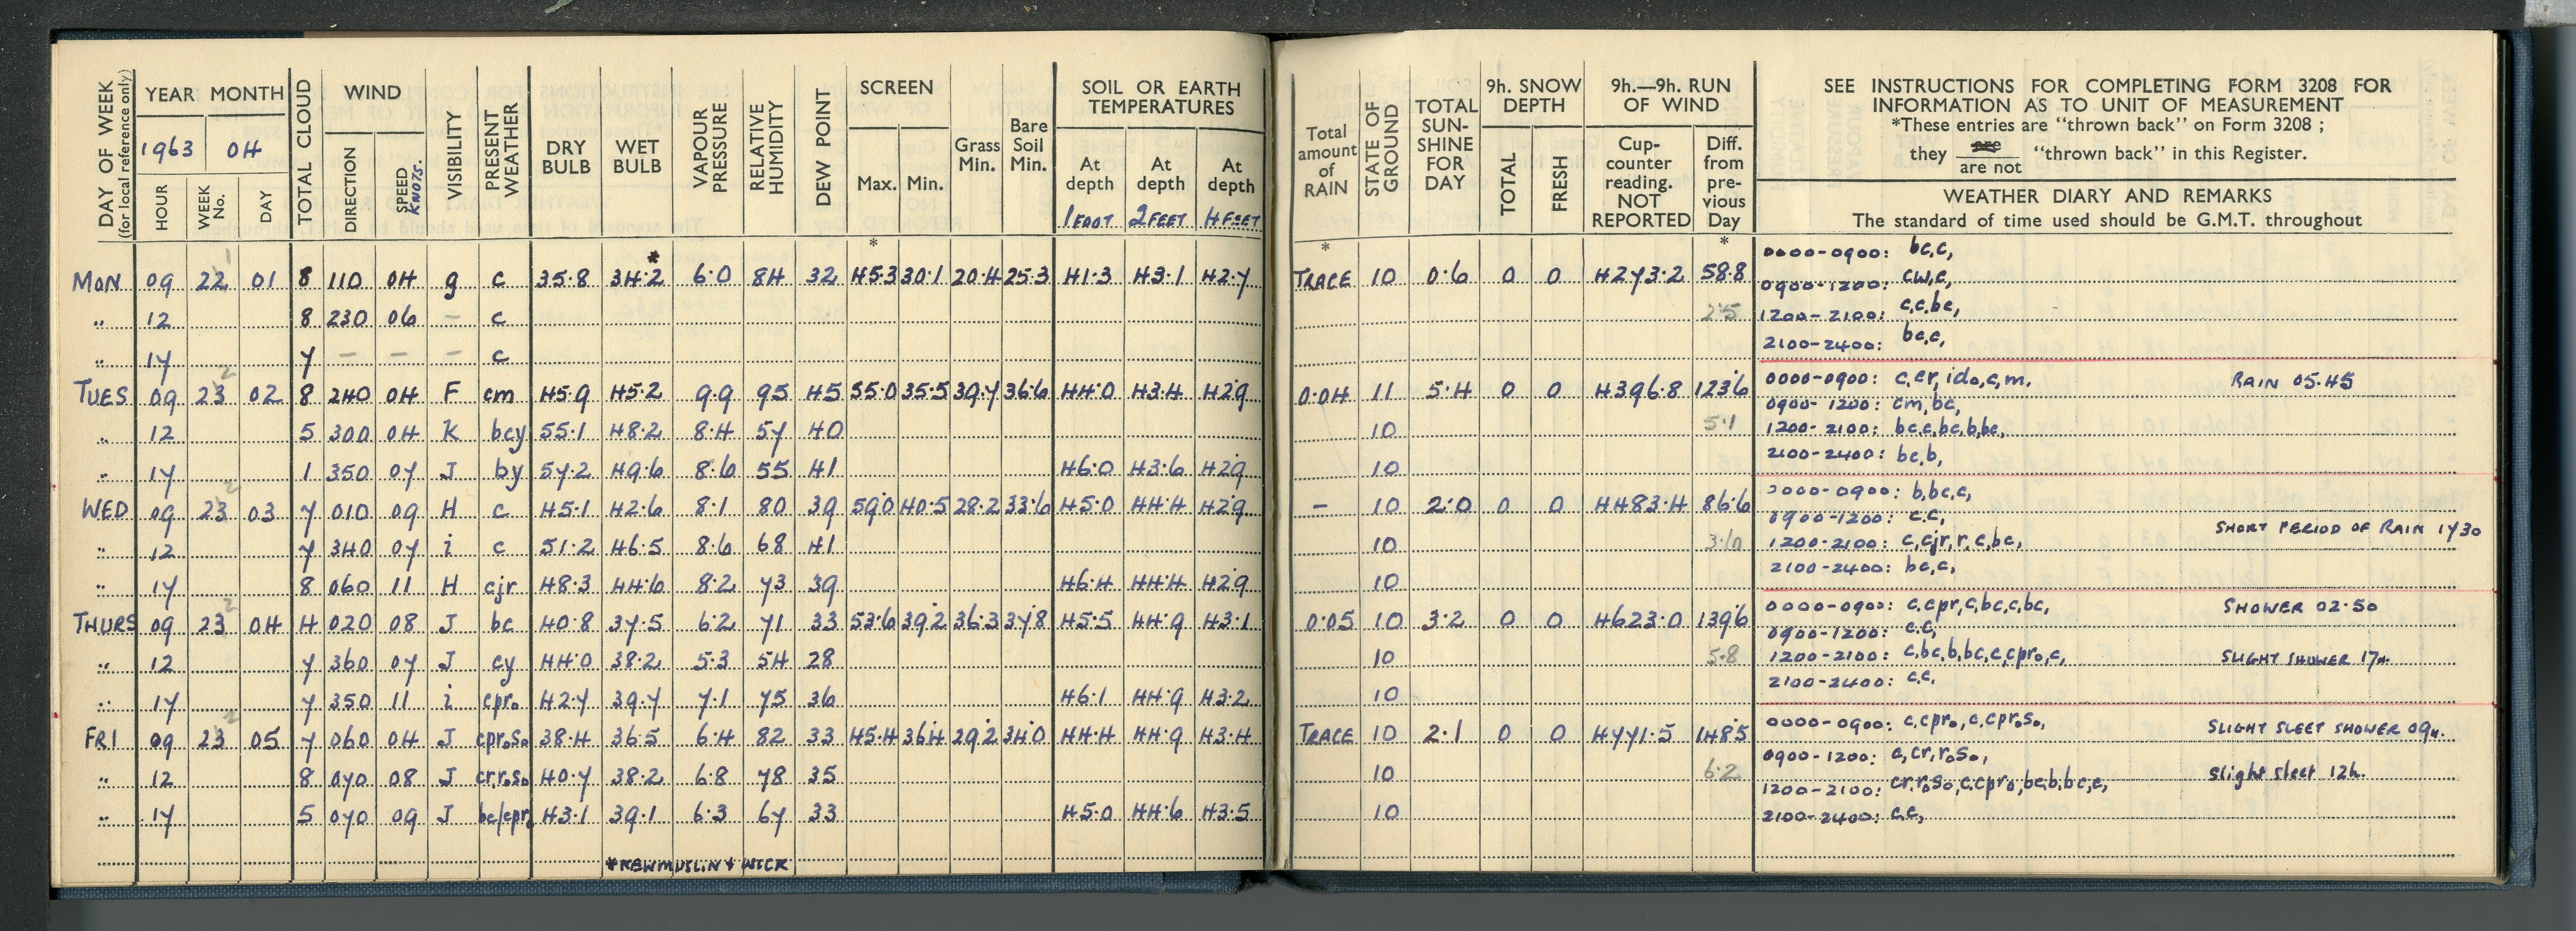 DAY OF WEEK (for local reference only) YEAR MONTH TOTAL CLOUD WIND VISIBILITY PRESENT WEATHER DRY BULB WET BULB VAPOUR PRESSURE RELATIVE HUMIDITY DEW POINT SCREEN Grass Min. Bare Soil Min. SOIL OR EARTH TEMPERATURES
1963 04
HOUR WEEK No. DAY DIRECTION SPEED KNOTS. Max. Min. At depth 1 FOOT At depth 2 FEET At depth 4 FEET
MON 09 22 01 8 110 04 g c 35.8 34.2* 6.0 84 32 *45.3 30.1 20.4 25.3 41.3 43.1 42.7
" 12 8 230 06 – c
" 17 7 – – – c
TUES 09 23 02 8 240 04 F cm 45.9 45.2 9.9 95 45 55.0 35.5 39.7 36.6 44.0 43.4 42.9
" 12 5 300 04 K bcy 55.1 48.2 8.4 57 40
" 17 1 350 07 J by 57.2 49.6 8.6 55 41 46.0 43.6 42.9
WED 09 23 03 7 010 09 H c 45.1 42.6 8.1 80 39 59.0 40.5 28.2 33.6 45.0 44.4 42.9
" 12 7 340 07 i c 51.2 46.5 8.6 68 41
" 17 8 060 11 H cjr 48.3 44.6 8.2 73 39 46.4 44.4 42.9
THURS 09 23 04 4 020 08 J bc 40.8 37.5 6.2 71 33 53.6 39.2 36.3 37.8 45.5 44.9 43.1
" 12 7 360 07 J cy 44.0 38.2 5.3 54 28
" 17 7 350 11 i cpro 42.7 39.7 7.1 75 36 46.1 44.9 43.2
FRI 09 23 05 7 060 04 J cproso 38.4 36.5 6.4 82 33 45.4 36.4 29.2 34.0 44.4 44.9 43.4
" 12 8 070 08 J cr,roso 40.7 38.2 6.8 78 35
" 17 5 070 09 J bc/cpro 43.1 39.1 6.3 67 33 45.0 44.6 43.5
*NEW MUSLIN & WICK
Total amount of RAIN STATE OF GROUND TOTAL SUN-SHINE FOR DAY 9h. SNOW DEPTH 9h.—9h. RUN OF WIND
TOTAL FRESH Cup-counter reading. NOT REPORTED Diff. from pre-vious Day
SEE INSTRUCTIONS FOR COMPLETING FORM 3208 FOR
INFORMATION AS TO UNIT OF MEASUREMENT
*These entries are "thrown back" on Form 3208 ;
they are / are not "thrown back" in this Register.
WEATHER DIARY AND REMARKS
The standard of time used should be G.M.T. throughout
* *
TRACE 10 0.6 0 0 4273.2 58.8
2.5
0000-0900: bc,c,
0900-1200: cw,c,
1200-2100: c,c,bc,
2100-2400: bc,c,
0.04 11 5.4 0 0 4396.8 123.6
10 5.1
10
0000-0900: c,cr,ido,c,m. RAIN 05.45
0900-1200: cm,bc,
1200-2100: bc,c,bc,b,bc,
2100-2400: bc,b,
– 10 2.0 0 0 4483.4 86.6
10 3.6
10
0000-0900: b,bc,c,
0900-1200: c,c,
1200-2100: c,cjr,r,c,bc, SHORT PERIOD OF RAIN 1730
2100-2400: bc,c,
0.05 10 3.2 0 0 4623.0 139.6
10 5.8
10
0000-0900: c,cpr,c,bc,c,bc, SHOWER 02.50
0900-1200: c,c,
1200-2100: c,bc,b,bc,c,cpro,c, SLIGHT SHOWER 17H.
2100-2400: c,c,
TRACE 10 2.1 0 0 4771.5 148.5
10 6.2
10
0000-0900: c,cpro,c,cproso, SLIGHT SLEET SHOWER 09H.
0900-1200: c,cr,roso,
1200-2100: cr,roso,c,cpro,bc,b,bc,c, Slight sleet 12h.
2100-2400: c,c,